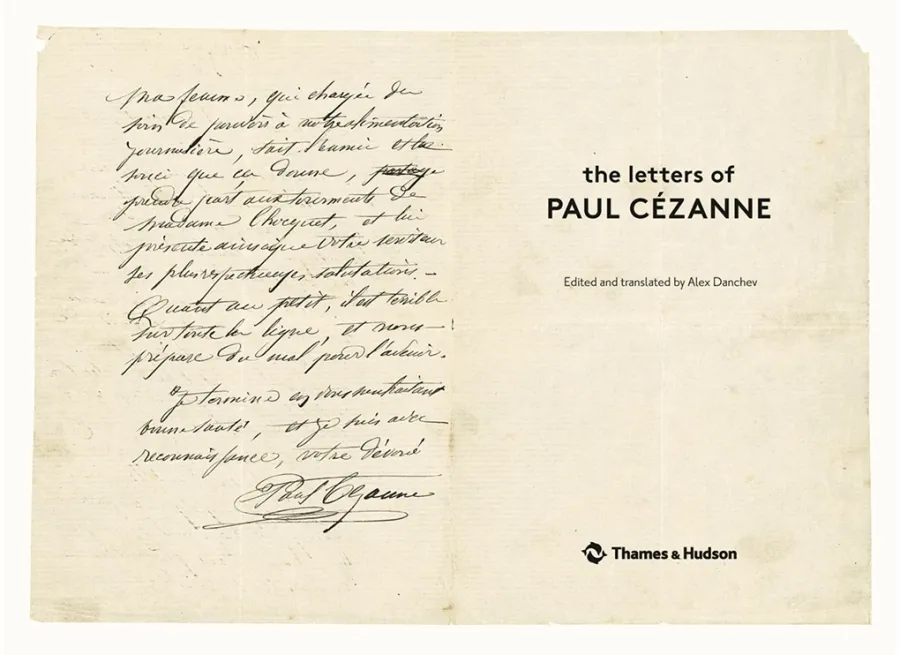 Ma femme, qui chargée du
soin de pourvoir à notre alimentation
journalière, sait l'ennui et le
souci que ça donne,
prendre part aux tourments de
madame Chocquet, et lui
présente ainsi que votre serviteur
ses plus respectueuses salutations. –
Quant au petit, il est terrible
sur toute la ligne, et nous
prépare du mal pour l'avenir.
Je termine en vous souhaitant
bonne santé, et je suis avec
reconnaissance, votre dévoué
Paul Cezanne
the letters of
PAUL CÉZANNE
Edited and translated by Alex Danchev
Thames & Hudson